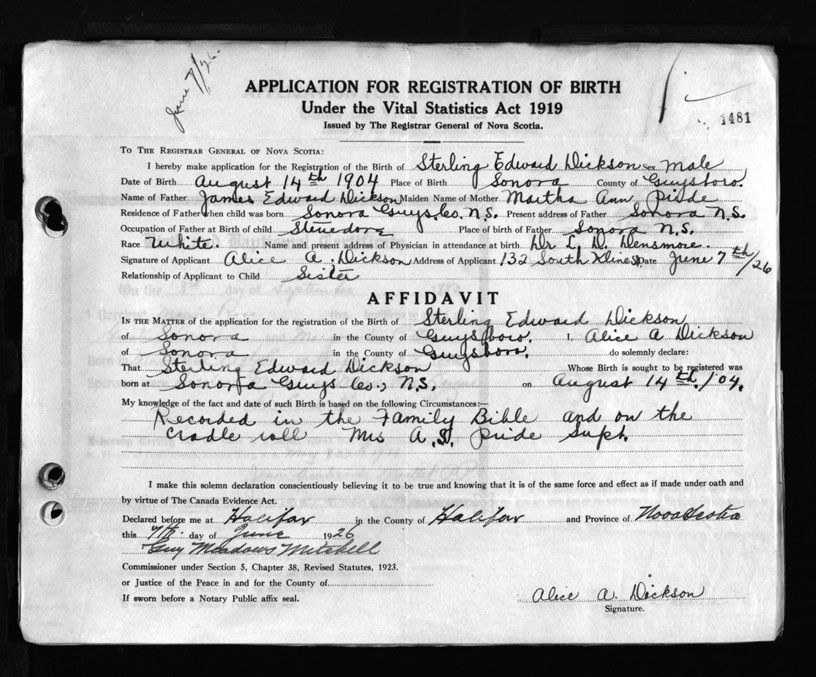 June 7/26.
APPLICATION FOR REGISTRATION OF BIRTH
Under the Vital Statistics Act 1919
Issued by The Registrar General of Nova Scotia.
1481
TO THE REGISTRAR GENERAL OF NOVA SCOTIA:
I hereby make application for the Registration of the Birth of Sterling Edward Dickson Sex Male
Date of Birth August 14th 1904 Place of Birth Sonora County of Guysboro.
Name of Father James Edward Dickson Maiden Name of Mother Martha Ann Pride
Residence of Father when child was born Sonora Guys. Co. N.S. Present address of Father Sonora N.S.
Occupation of Father at Birth of child Stevedore Place of birth of Father Sonora N.S.
Race White. Name and present address of Physician in attendance at birth Dr L. D. Densmore.
Signature of Applicant Alice A. Dickson Address of Applicant 132 South Kline St Date June 7th/26
Relationship of Applicant to Child Sister
AFFIDAVIT
IN THE MATTER of the application for the registration of the Birth of Sterling Edward Dickson
of Sonora in the County of Guysboro. I, Alice A Dickson
of Sonora in the County of Guysboro. do solemnly declare:
That Sterling Edward Dickson Whose Birth is sought to be registered was
born at Sonora Guys Co., N.S. on August 14th./04.
My knowledge of the fact and date of such Birth is based on the following Circumstances:—
Recorded in the Family Bible and on the
Cradle roll Mrs A.S. Pride Supt.
I make this solemn declaration conscientiously believing it to be true and knowing that it is of the same force and effect as if made under oath and
by virtue of The Canada Evidence Act.
Declared before me at Halifax in the County of Halifax and Province of Nova Scotia
this 7th day of June 1926
Guy Meadows Mitchell
Commissioner under Section 5, Chapter 38, Revised Statutes, 1923.
or Justice of the Peace in and for the County of
If sworn before a Notary Public affix seal.
Alice A. Dickson
Signature.